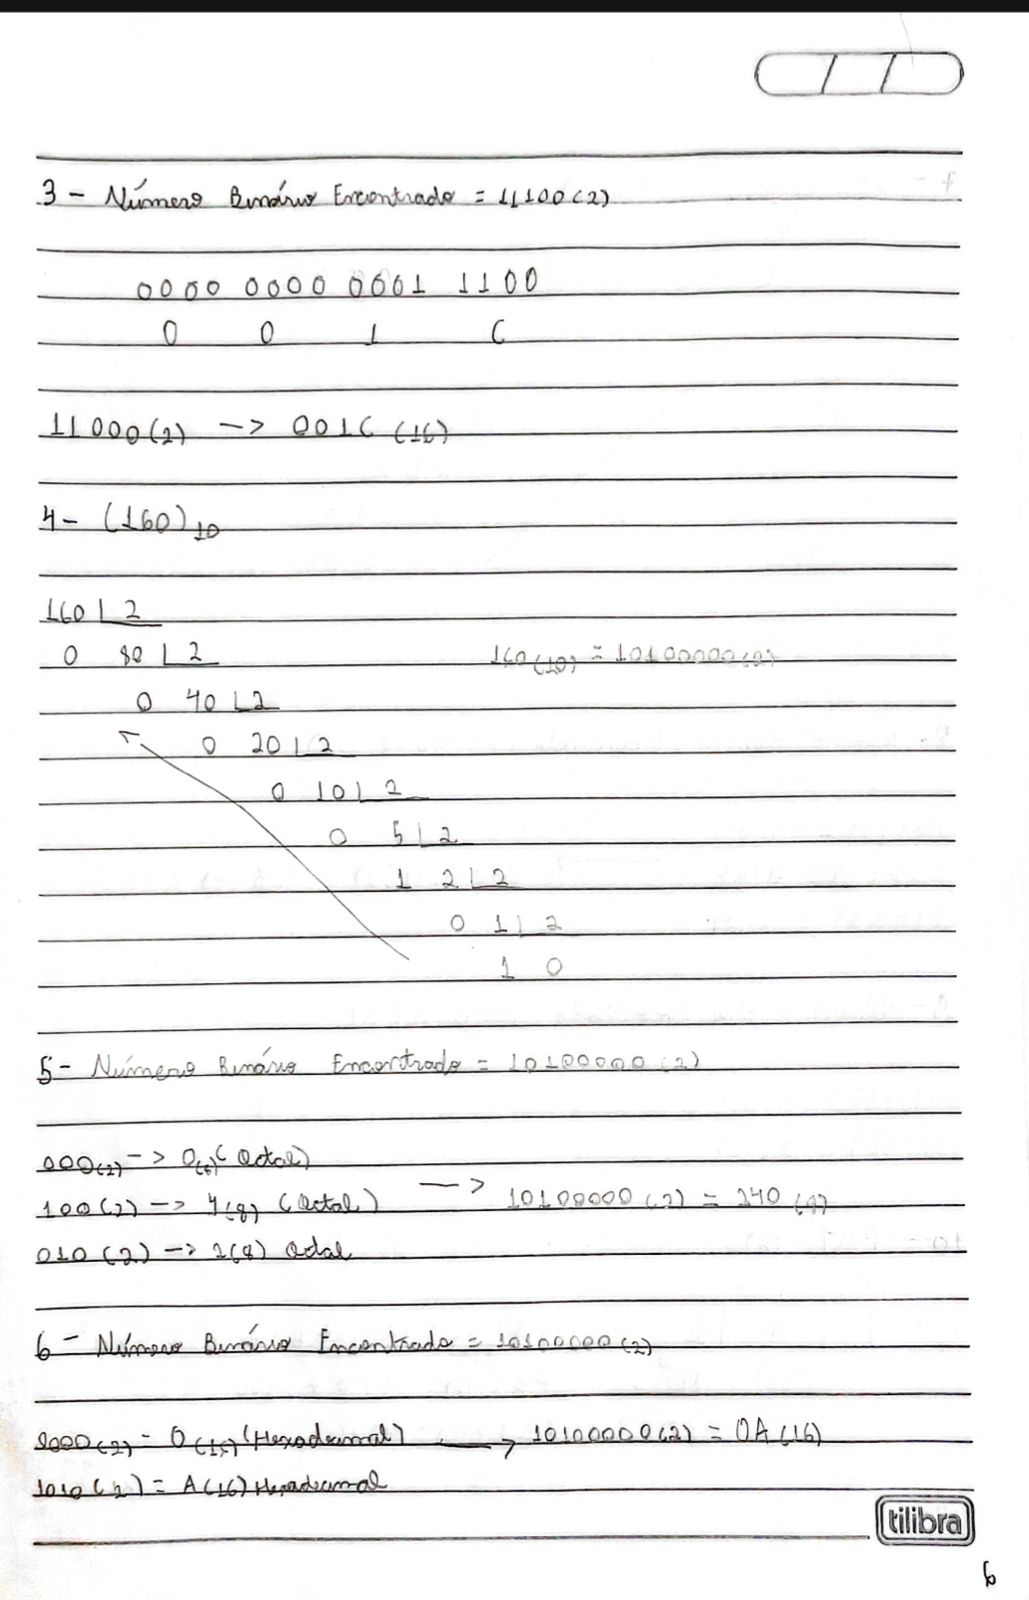 3 - Número Binário Encontrado = 11100(2)
0000 0000 0001 1100
0 0 1 C
11000(2) -> 001C (16)
4 - (160)10
160 | 2
0 80 | 2 160(10) = 10100000(2)
0 40 | 2
0 20 | 2
0 10 | 2
0 5 | 2
1 2 | 2
0 1 | 2
1 0
5 - Número Binário Encontrado = 10100000(2)
000(2) -> 0(8) (Octal)
100(2) -> 4(8) (Octal) -> 10100000(2) = 240(8)
010(2) -> 2(8) Octal
6 - Número Binário Encontrado = 10100000(2)
0000(2) = 0(16) (Hexadecimal) -> 10100000(2) = 0A(16)
1010(2) = A(16) Hexadecimal
tilibra
6